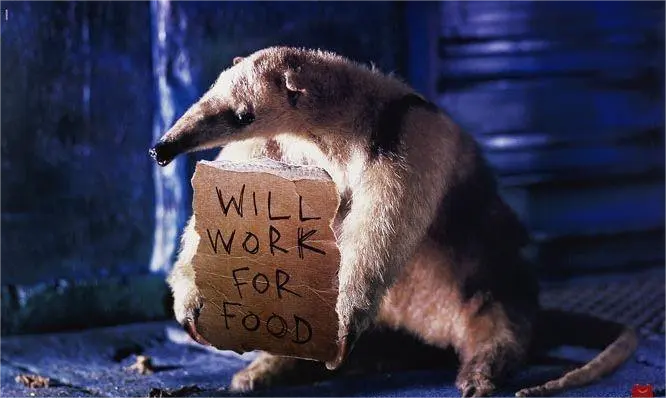 WILL
WORK
FOR
FOOD